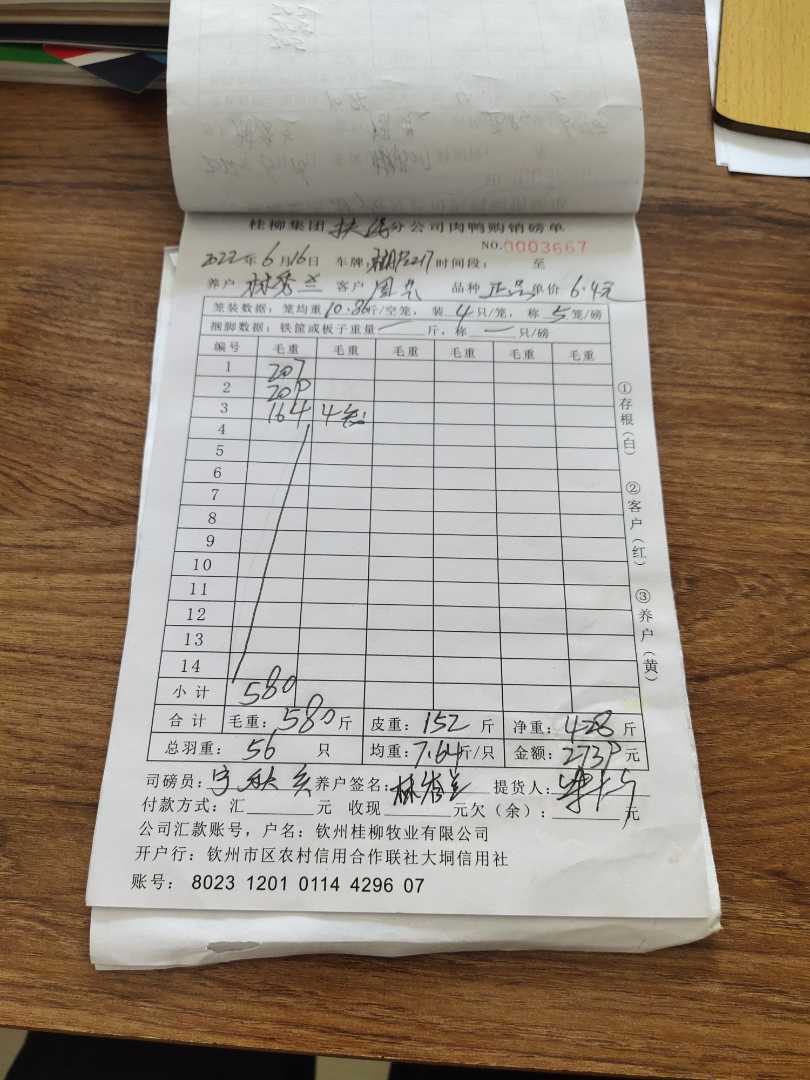 桂柳集团 分公司肉鸭购销磅单
NO.0003667
2022年6月16日 车牌: 时间段: 至
养户 林秀兰 客户 周 品种 正品 单价 6.4元
笼装数据: 笼均重10.86斤/空笼, 装 4 只/笼, 称 5 笼/磅
捆脚数据: 铁筐或板子重量 一 斤, 称 一 只/磅
编号 毛重 毛重 毛重 毛重 毛重 毛重
1 207
2 209
3 164 4笼
4
5
6
7
8
9
10
11
12
13
14
小计 580
合计 毛重: 580 斤 皮重: 152 斤 净重: 428 斤
总羽重: 56 只 均重: 7.64斤/只 金额: 2739 元
司磅员: 宁秋 养户签名: 林秀兰 提货人:
付款方式: 汇 元 收现 元欠(余): 元
公司汇款账号, 户名: 钦州桂柳牧业有限公司
开户行: 钦州市区农村信用合作联社大垌信用社
账号: 8023 1201 0114 4296 07
①存根(白)
②客户(红)
③养户(黄)